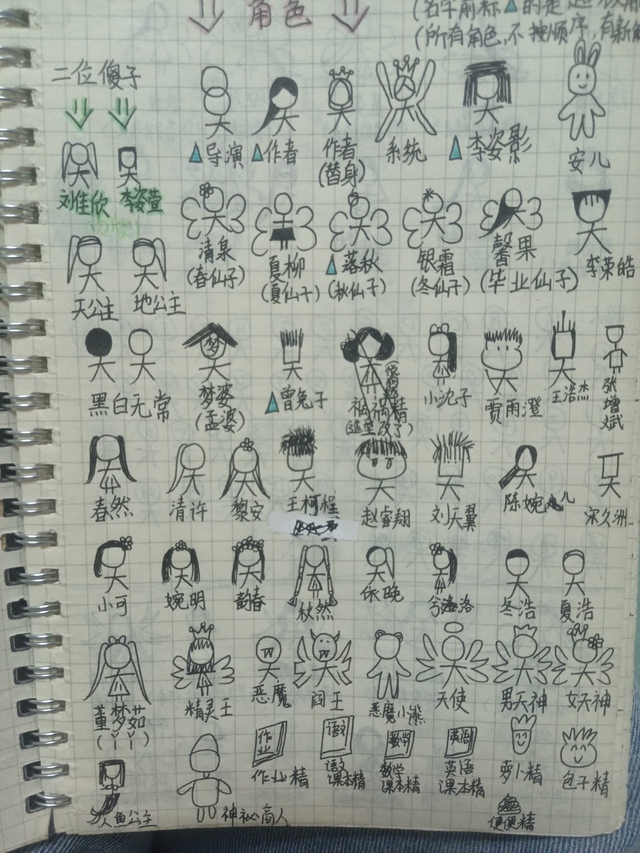 角色
(名字前标▲的是
(所有角色,不按顺序,有新
二位傻子
导演 作者 作者 系统 李姿影 安儿
(替身)
刘佳欣 李姿萱
清泉 夏柳 落秋 银霜 馨果 李荣皓
(春仙子) (夏仙子) (秋仙子) (冬仙子) (毕业仙子)
天公主 地公主
黑白无常 梦婆 曾兔子 祸祸精 小沈子 贾雨澄 王浩杰 张增斌
梦
(孟婆)
春然 清许 黎安 王柯程 赵睿翔 刘天翼 陈婉儿 宋久洲
小可 婉明 韵春 秋然 依晚 洛 冬浩 夏浩
董梦茹 精灵王 恶魔 阎王 恶魔小熊 天使 男天神 女天神
(丫丫)
作业 语文 数学 英语
作业精 语文课本精 数学课本精 英语课本精 萝卜精 包子精
人鱼公主 神秘商人 便便精